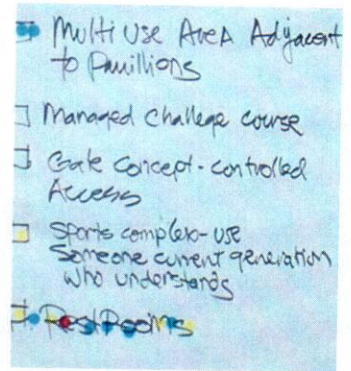 Multi Use Area Adjacent
to Pavillions
Managed Challege course
Gate Concept-controlled
Access
Sports complex-use
Someone current generation
who understands
RestRooms